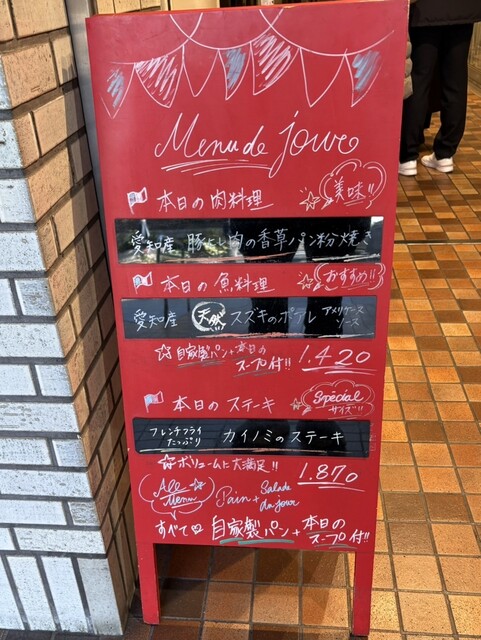 Menu de jour
本日の肉料理
美味!!
愛知産 豚ヒレ肉の香草パン粉焼き
本日の魚料理
おすすめ!!
愛知産 天然 スズキのポワレ アメリケーヌソース
☆自家製パン+本日のスープ付!! 1.420
本日のステーキ
Special
サイズ!!
フレンチフライ
たっぷり
カイノミのステーキ
☆ボリュームに大満足!! 1.870
All Menu
Pain + Salade du jour
すべて♡ 自家製パン+本日のスープ付!!